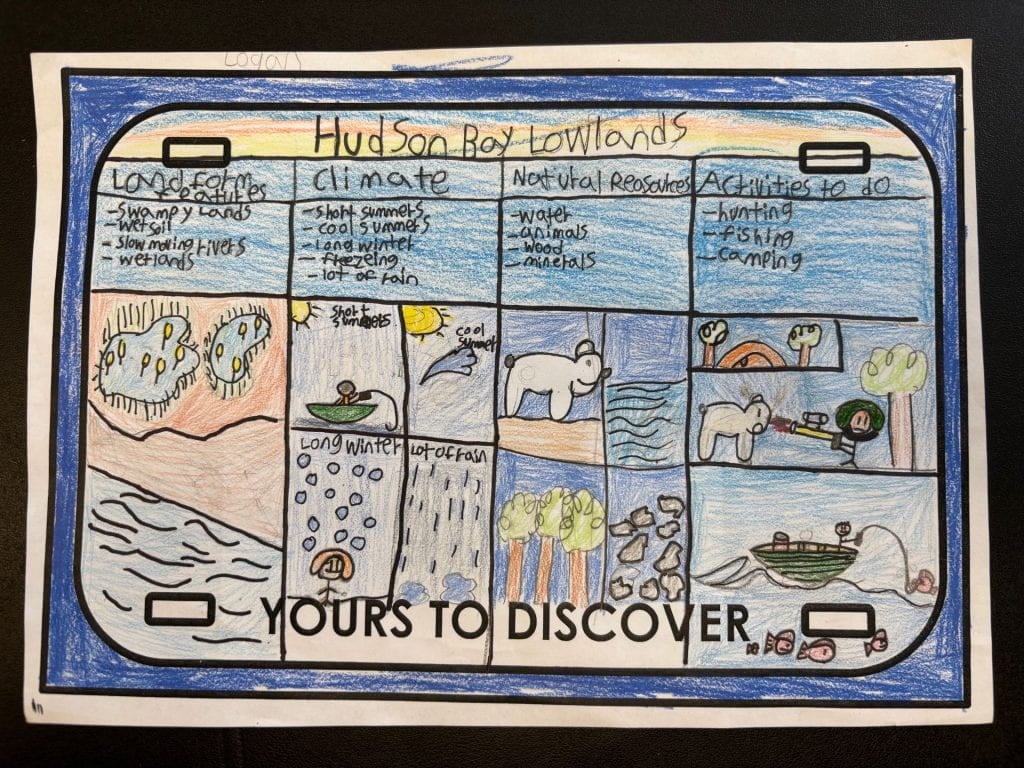 Logan
Hudson Bay Lowlands
Landform
Features
-Swampy Lands
-wet soil
-slow moving rivers
-wetlands
Climate
-short summers
-cool summers
-Long winter
-freezeing
-lot of rain
Natural Reasources
-water
-animals
-wood
-minerals
Activities to do
-hunting
-fishing
-camping
short
summers
cool
summer
Long winter
Lot of rain
YOURS TO DISCOVER